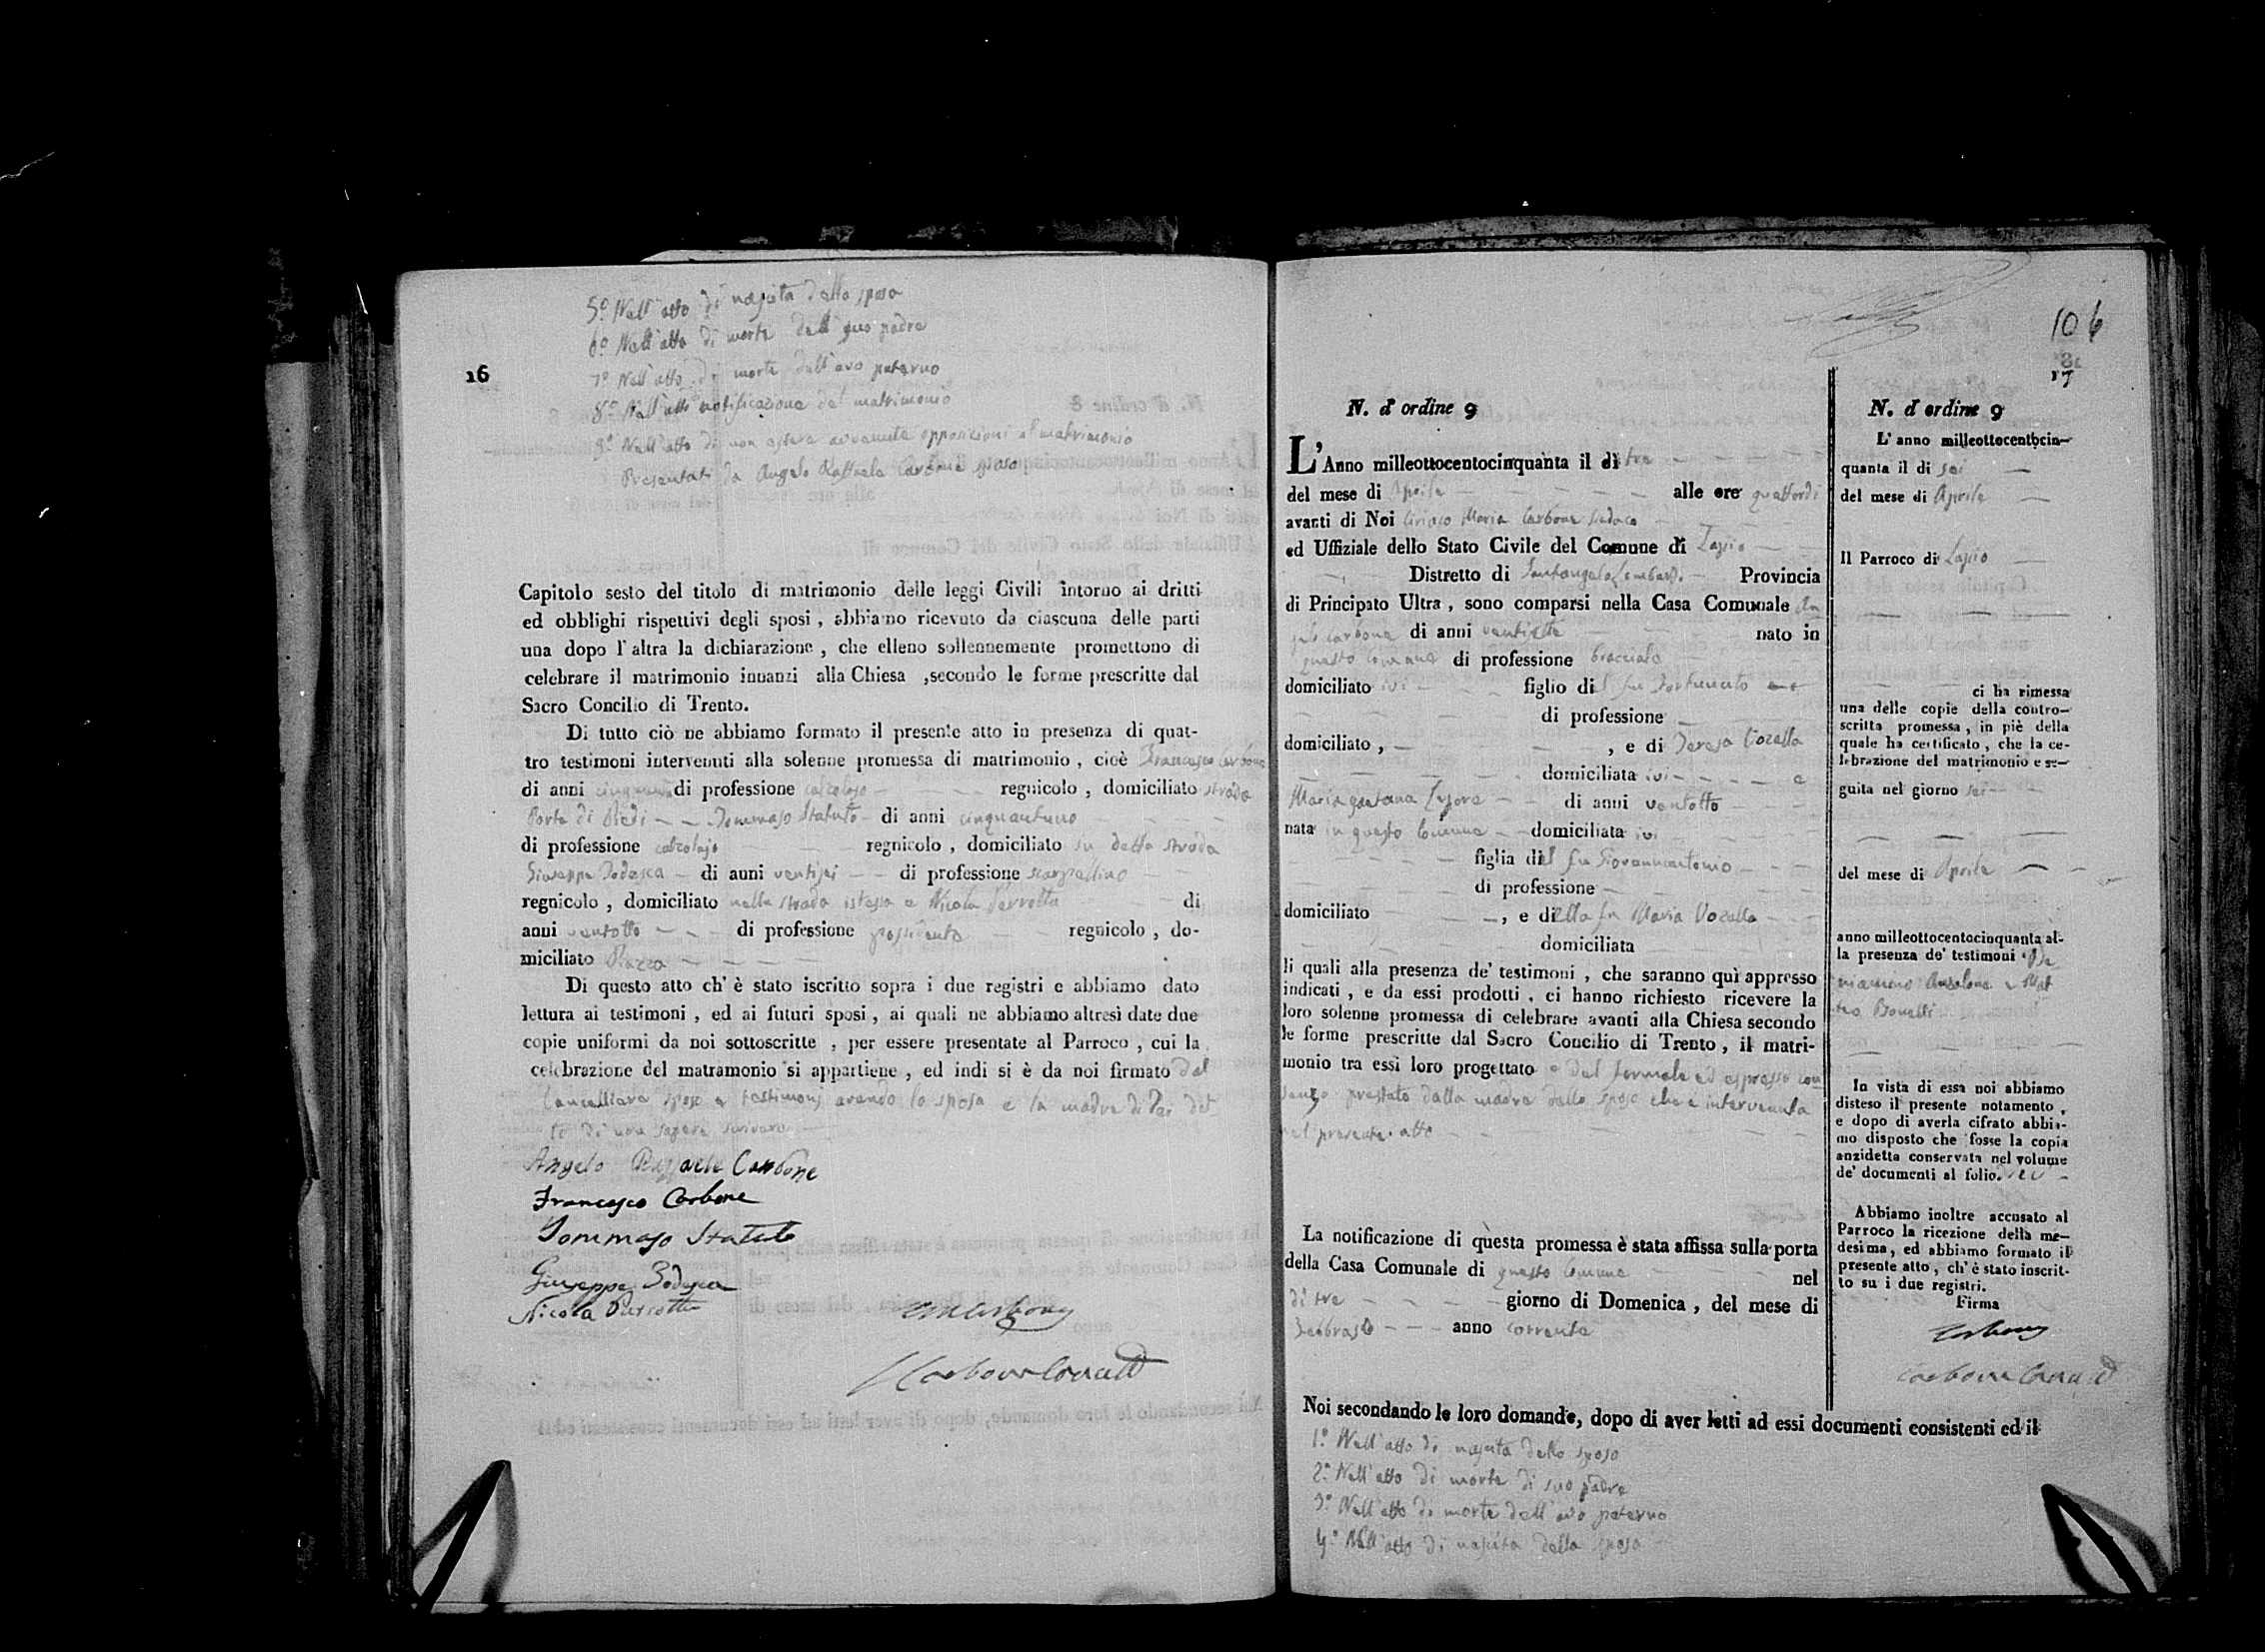 5.º Nell'atto di nascita della sposa
6.º Nell'atto di morte del suo padre
7.º Nell'atto di morte dell'avo paterno
8.º Nell'atto notificazione del matrimonio
9.º Nell'atto di non essere avvenute opposizioni al matrimonio
Presentati da Angelo Raffaele Carbone sposo
16
Capitolo sesto del titolo di matrimonio delle leggi Civili intorno ai dritti
ed obblighi rispettivi degli sposi , abbiamo ricevuto da ciascuna delle parti
una dopo l'altra la dichiarazione , che elleno sollennemente promettono di
celebrare il matrimonio innanzi alla Chiesa ,secondo le forme prescritte dal
Sacro Concilio di Trento.
Di tutto ciò ne abbiamo formato il presente atto in presenza di quat-
tro testimoni intervenuti alla solenne promessa di matrimonio , cioè Francesco Carbone
di anni cinquanta di professione calzolajo regnicolo , domiciliato strada
Porta di Piedi Tommaso Statuto di anni cinquantuno
di professione calzolajo regnicolo , domiciliato in detta strada
Giuseppe Todesca di anni ventisei di professione scarpellino
regnicolo , domiciliato nella strada istessa e Nicola Perrotta di
anni ventotto di professione possidente regnicolo , do-
miciliato Piazza
Di questo atto ch' è stato iscritto sopra i due registri e abbiamo dato
lettura ai testimoni , ed ai futuri sposi , ai quali ne abbiamo altresì date due
copie uniformi da noi sottoscritte , per essere presentate al Parroco , cui la
celebrazione del matramonio si appartiene , ed indi si è da noi firmato dal
Cancelliere sposo e testimonj avendo la sposa e la madre di lei det
to di non sapere scrivere
Angelo Raffaele Carbone
Francesco Carbone
Tommaso Statuto
Giuseppe Todesca
Nicola Perrotta
106
17
N. d' ordine 9
L'Anno milleottocentocinquanta il dì tre
del mese di Aprile alle ore quattordi
avanti di Noi Ciriaco Maria Carbone Sindaco
ed Uffiziale dello Stato Civile del Comune di Lapio
Distretto di Santangelo Lombardi Provincia
di Principato Ultra , sono comparsi nella Casa Comunale An
gelo Carbone di anni ventisette nato in
questo Comune di professione bracciale
domiciliato ivi figlio del fu Fortunato
di professione
domiciliato , , e di Teresa Vozella
domiciliata ivi e
Maria Gaetana di anni ventotto
nata in questo Comune domiciliata ivi
figlia del fu Giovannantonio
di professione
domiciliato , e della fu Maria Vozella
domiciliata
li quali alla presenza de' testimoni , che saranno quì appresso
indicati , e da essi prodotti , ci hanno richiesto ricevere la
loro solenne promessa di celebrare avanti alla Chiesa secondo
le forme prescritte dal Sacro Concilio di Trento , il matri-
monio tra essi loro progettato e del formale ed espresso con
senso prestato dalla madre dello sposo che è intervenuta
nel presente atto
La notificazione di questa promessa è stata affissa sulla porta
della Casa Comunale di questo Comune nel
dì tre giorno di Domenica , del mese di
Febbrajo anno corrente
N. d' ordine 9
L' anno milleottocentocin-
quanta il di sei
del mese di Aprile
Il Parroco di Lapio
ci ha rimessa
una delle copie della contro-
scritta promessa , in piè della
quale ha certificato , che la ce-
lebrazione del matrimonio e se-
guita nel giorno sei
del mese di Aprile
anno milleottocentocinquanta al-
la presenza de' testimoni Be
niamino Anzalone e Mat
teo Bonelli
In vista di essa noi abbiamo
disteso il presente notamento ,
e dopo di averla cifrato abbia-
mo disposto che fosse la copia
anzidetta conservata nel volume
de' documenti al folio.
Abbiamo inoltre accusato al
Parroco la ricezione della me-
desima, ed abbiamo formato il
presente atto , ch' è stato inscrit-
to su i due registri.
Firma
Carbone
Noi secondando le loro domande, dopo di aver letti ad essi documenti consistenti ed il
1.º Nell'atto di nascita dello sposo
2.º Nell'atto di morte di suo padre
3.º Nell'atto di morte dell'avo paterno
4.º Nell'atto di nascita della sposa